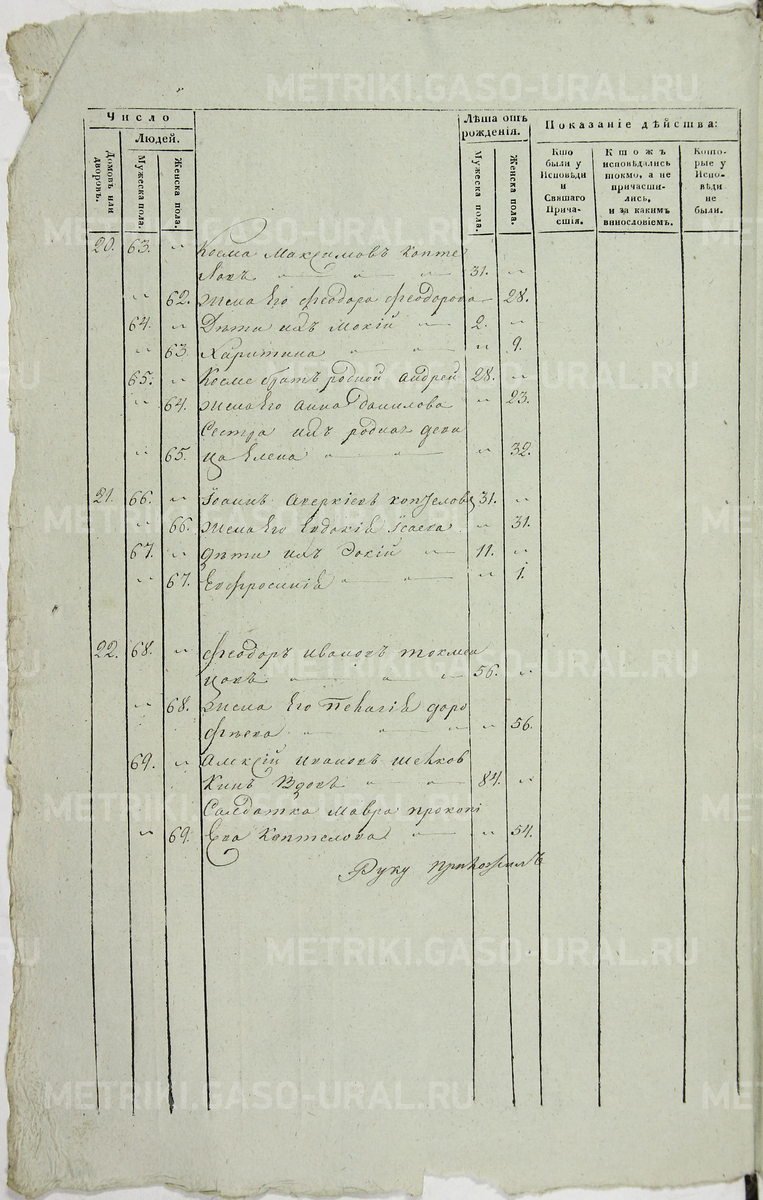 Число
Людей.
Домовъ или дворовъ.
Мужеска пола.
Женска пола.
Лѣта отъ рожденія.
Мужеска пола.
Женска пола.
Показаніе дѣйства:
Кто были у Исповѣди и Святаго Причастія.
Ктожъ исповѣдались токмо, а не причастились, и за какимъ винословіемъ.
Которые у Исповѣди не были.
20. 63. " Косма Максимовъ Копте
ловъ " " " 31. "
" 62. Жена Его Феодора Феодорова 28.
64. " Дѣти ихъ Мокій " 2. "
" 63 Харитина " " " 9.
65. " Косме братъ родной Андрей 28. "
" 64. Жена Его Анна Данилова " 23.
Сестра ихъ родная деви
" 65. ца Елена " " " 32.
21. 66. " Іоаннъ Аверкіевъ Коптеловъ 31. "
" 66. Жена Его Евдокія Ісаева " 31.
67. " Дѣти ихъ Зокій " 11. "
" 67. Евфросинія " " " 1.
22. 68. " Феодоръ Ивановъ Токман
цовъ " " " 56. "
" 68. Жена Его Пелагія Доро
фѣева " " " 56.
69. " Алексій Ивановъ Шелков
кинъ Вдовъ " " 84. "
Салдатка Мавра Прокопі
" 69. Ева Коптелова " " 54.
Руку приложилъ
METRIKI.GASO-URAL.RU